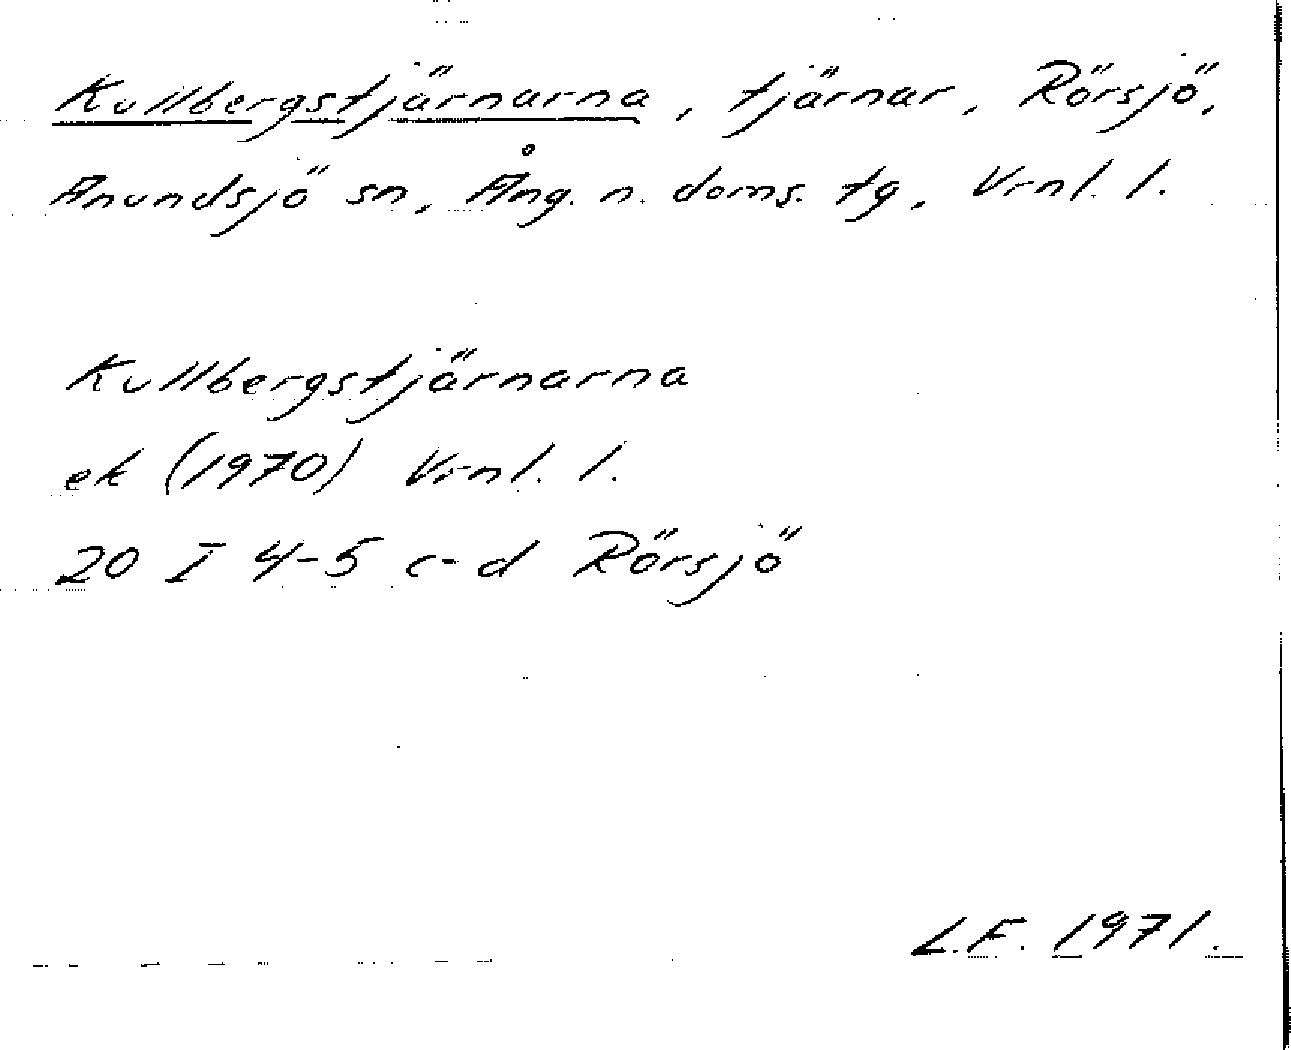 Kullbergstjärnarna, tjärnar, Rörsjö,
Anundsjö sn, Ång. n. doms. tg, Vrnl. l.
Kullbergstjärnarna
ek (1970) Vrnl. l.
20 I 4-5 c-d Rörsjö
L.F. 1971.